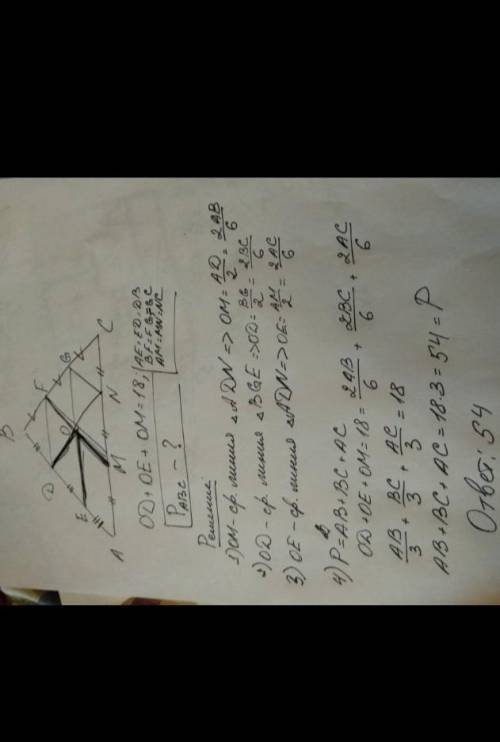 B
D
F
E
O
G
A
M
N
C
OD + OE + OM = 18; AE = ED = DB
BF = FG = GC
AM = MN = NC
P ABC - ?
Решение
1) OM - ср. линия △ADN => OM = AD/2 = 2AB/6
2) OD - ср. линия △BGE => OD = BG/2 = 2BC/6
3) OE - ср. линия △ADN => OE = AM/2 = 2AC/6
4) P△ = AB + BC + AC
OD + OE + OM = 18 = 2AB/6 + 2BC/6 + 2AC/6
AB/3 + BC/3 + AC/3 = 18
AB + BC + AC = 18·3 = 54 = P
Ответ: 54